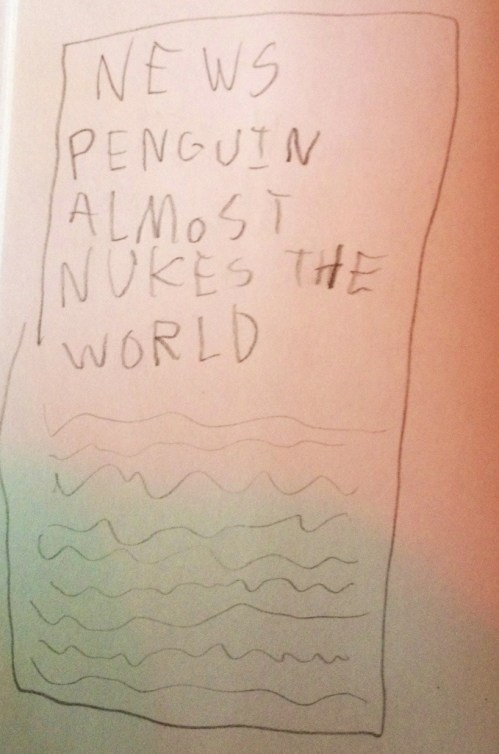 NEWS
PENGUIN
ALMOST
NUKES THE
WORLD